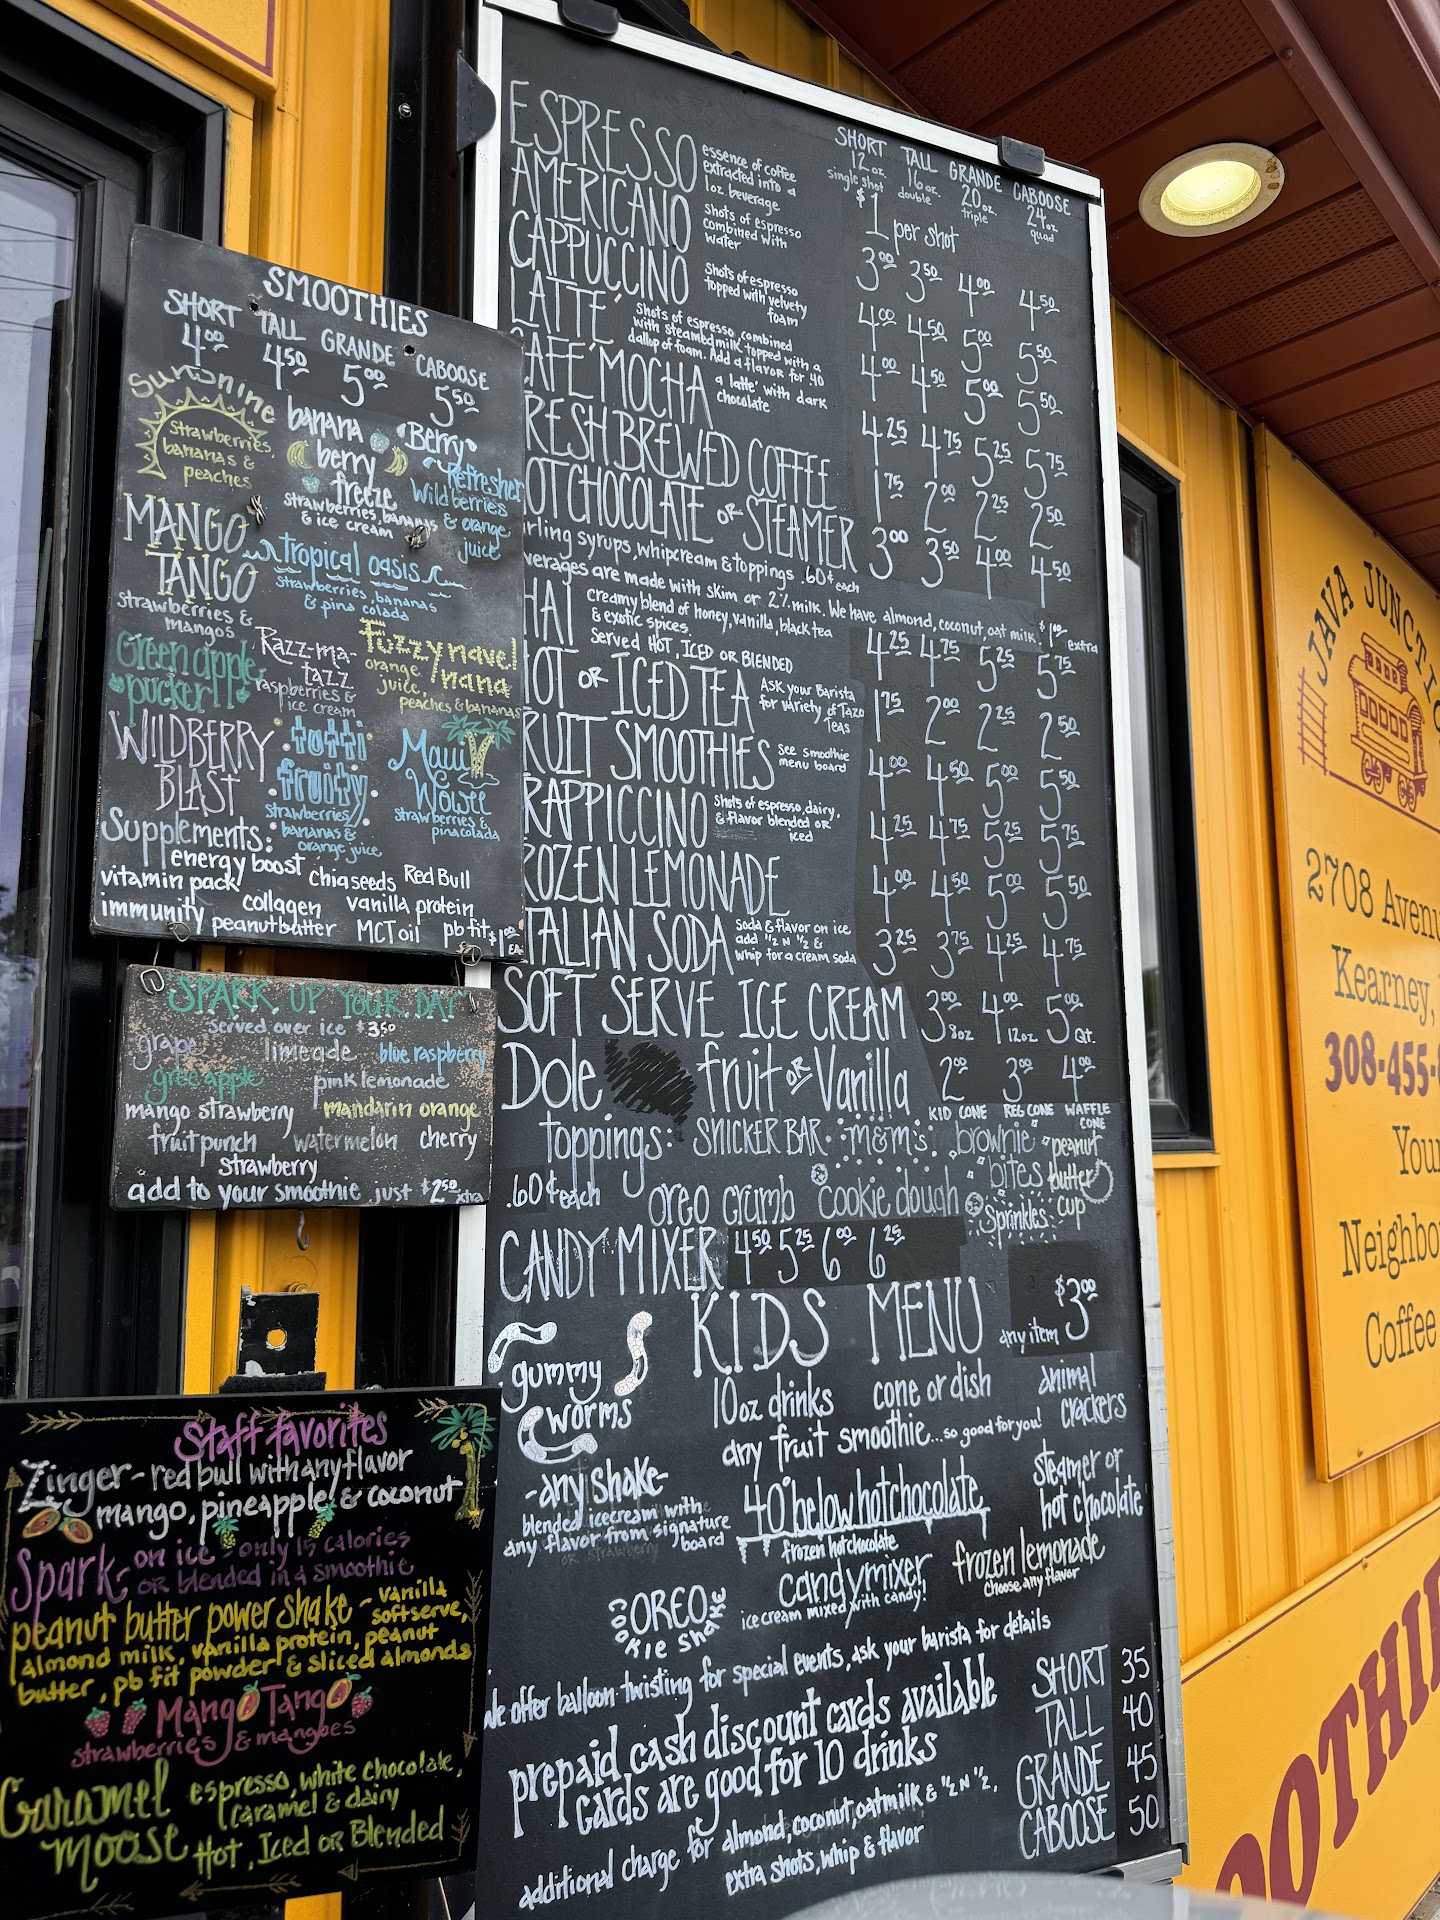 SMOOTHIES
SHORT TALL GRANDE CABOOSE
4.00 4.50 5.00 5.50
Sunshine
strawberries,
bananas &
peaches
banana
berry
freeze
strawberries, bananas
& ice cream
Berry
Refresher
Wildberries
& orange
juice
MANGO
TANGO
strawberries &
mangos
tropical oasis
strawberries, bananas
& pina colada
Green apple
pucker
Razz-ma-
tazz
raspberries &
ice cream
Fuzzy navel
/nana
orange
juice,
peaches & bananas
WILDBERRY
BLAST
tutti
fruity
strawberries,
bananas &
orange juice
Maui
Wowee
strawberries &
pinacolada
Supplements:
energy boost chiaseeds Red Bull
vitamin pack collagen vanilla protein
immunity peanutbutter MCT oil pb fit $1.00 EA
"SPARK UP YOUR DAY"
Served over ice $3.50
grape limeade blue raspberry
gree apple pink lemonade
mango strawberry mandarin orange
fruit punch watermelon cherry
strawberry
add to your smoothie just $2.50 xtra
Staff favorites
Zinger - red bull with any flavor
mango, pineapple & coconut
Spark - on ice - only 15 calories
or blended in a smoothie
peanut butter power shake - vanilla
softserve,
almond milk, vanilla protein, peanut
butter, pb fit powder & sliced almonds
Mango Tango
strawberries & mangoes
Caramel
moose
espresso, white chocolate,
caramel & dairy
Hot, Iced or Blended
SHORT TALL GRANDE CABOOSE
12 oz. 16 oz. 20 oz. 24 oz
single shot double triple quad
ESPRESSO essence of coffee
extracted into a
1oz. beverage
$1 per shot
AMERICANO shots of espresso
combined with
water
3.00 3.50 4.00 4.50
CAPPUCCINO shots of espresso
topped with velvety
foam
4.00 4.50 5.00 5.50
LATTE' shots of espresso combined
with steamed milk topped with a
dallop of foam. Add a flavor for .40
4.00 4.50 5.00 5.50
AFE' MOCHA a latte' with dark
chocolate
4.25 4.75 5.25 5.75
RESH BREWED COFFEE 1.75 2.00 2.25 2.50
OT CHOCOLATE or STEAMER 3.00 3.50 4.00 4.50
rling syrups, whipcream & toppings .60¢ each
verages are made with skim or 2% milk. We have almond, coconut, oat milk $1.00 extra
HAI creamy blend of honey, vanilla, black tea
& exotic spices.
Served HOT, ICED OR BLENDED
4.25 4.75 5.25 5.75
OT OR ICED TEA Ask your Barista
for variety of Tazo
Teas
1.75 2.00 2.25 2.50
RUIT SMOOTHIES See smoothie
menu board
4.00 4.50 5.00 5.50
RAPPICCINO shots of espresso, dairy,
& flavor blended or
iced
4.25 4.75 5.25 5.75
ROZEN LEMONADE 4.00 4.50 5.00 5.50
TALIAN SODA Soda & flavor on ice
add 1/2 N 1/2 &
whip for a cream soda
3.25 3.75 4.25 4.75
SOFT SERVE ICE CREAM 3.00 4.00 5.00
8oz 12oz QT.
Dole fruit or Vanilla 2.00 3.00 4.00
KID CONE REG CONE WAFFLE CONE
toppings: SNICKER BAR m&m's brownie bites peanut butter cup
.60¢ each oreo crumb cookie dough Sprinkles
CANDY MIXER 4.50 5.25 6.00 6.25
KIDS MENU any item $3.00
gummy
worms
10oz drinks cone or dish animal
crackers
any fruit smoothie...so good for you!
- any shake -
blended icecream with
any flavor from signature
board
40° below hot chocolate
frozen hot chocolate
steamer or
hot chocolate
candy mixer
ice cream mixed with candy!
frozen lemonade
choose any flavor
OREO
COOKIE Shake
We offer balloon twisting for special events, ask your barista for details
prepaid cash discount cards available
cards are good for 10 drinks
additional charge for almond, coconut, oatmilk & 1/2 N 1/2,
extra shots, whip & flavor
SHORT 35
TALL 40
GRANDE 45
CABOOSE 50
JAVA JUNCTIO
2708 Avenu
Kearney,
308-455-
You
Neighbo
Coffee
OOTHIE